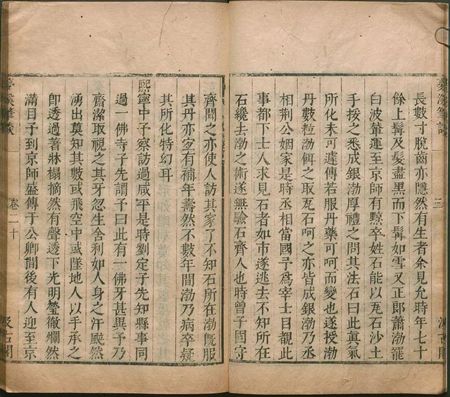 長數寸脫齒亦隱然有生者余見允時年七十
餘上髯及髮盡黑而下髯如雪又正郎蕭渤罷
白波輦運至京師有黥卒姓石能以瓦石沙土
手挼之悉成銀渤厚禮之問其法石曰此眞氣
所化未可遽傳若服丹藥可呵而變也遂授渤
丹數粒渤餌之取瓦石呵之亦皆成銀渤乃丞
相荆公姻家是時丞相當國予爲宰士目覩此
事都下士人求見石者如市遂逃去不知所在
石纔去渤之術遂無驗石齊人也時曾子固守
齊聞之亦使人訪其家了不知石所在渤既服
其丹亦宜有補年壽然不數年間渤乃病卒疑
其所化特幻耳
熙寧中予察訪過咸平是時劉定子先知縣事同
過一佛寺子先謂予曰此有一佛牙甚異予乃
齋潔取視之其牙忽生舍利如人身之汗颯然
湧出莫知其數或飛空中或墜地人以手承之
卽透過著牀榻摘然有聲透下光明瑩徹爛然
滿目予到京師盛傳于公卿間後有人迎至京
卷二十